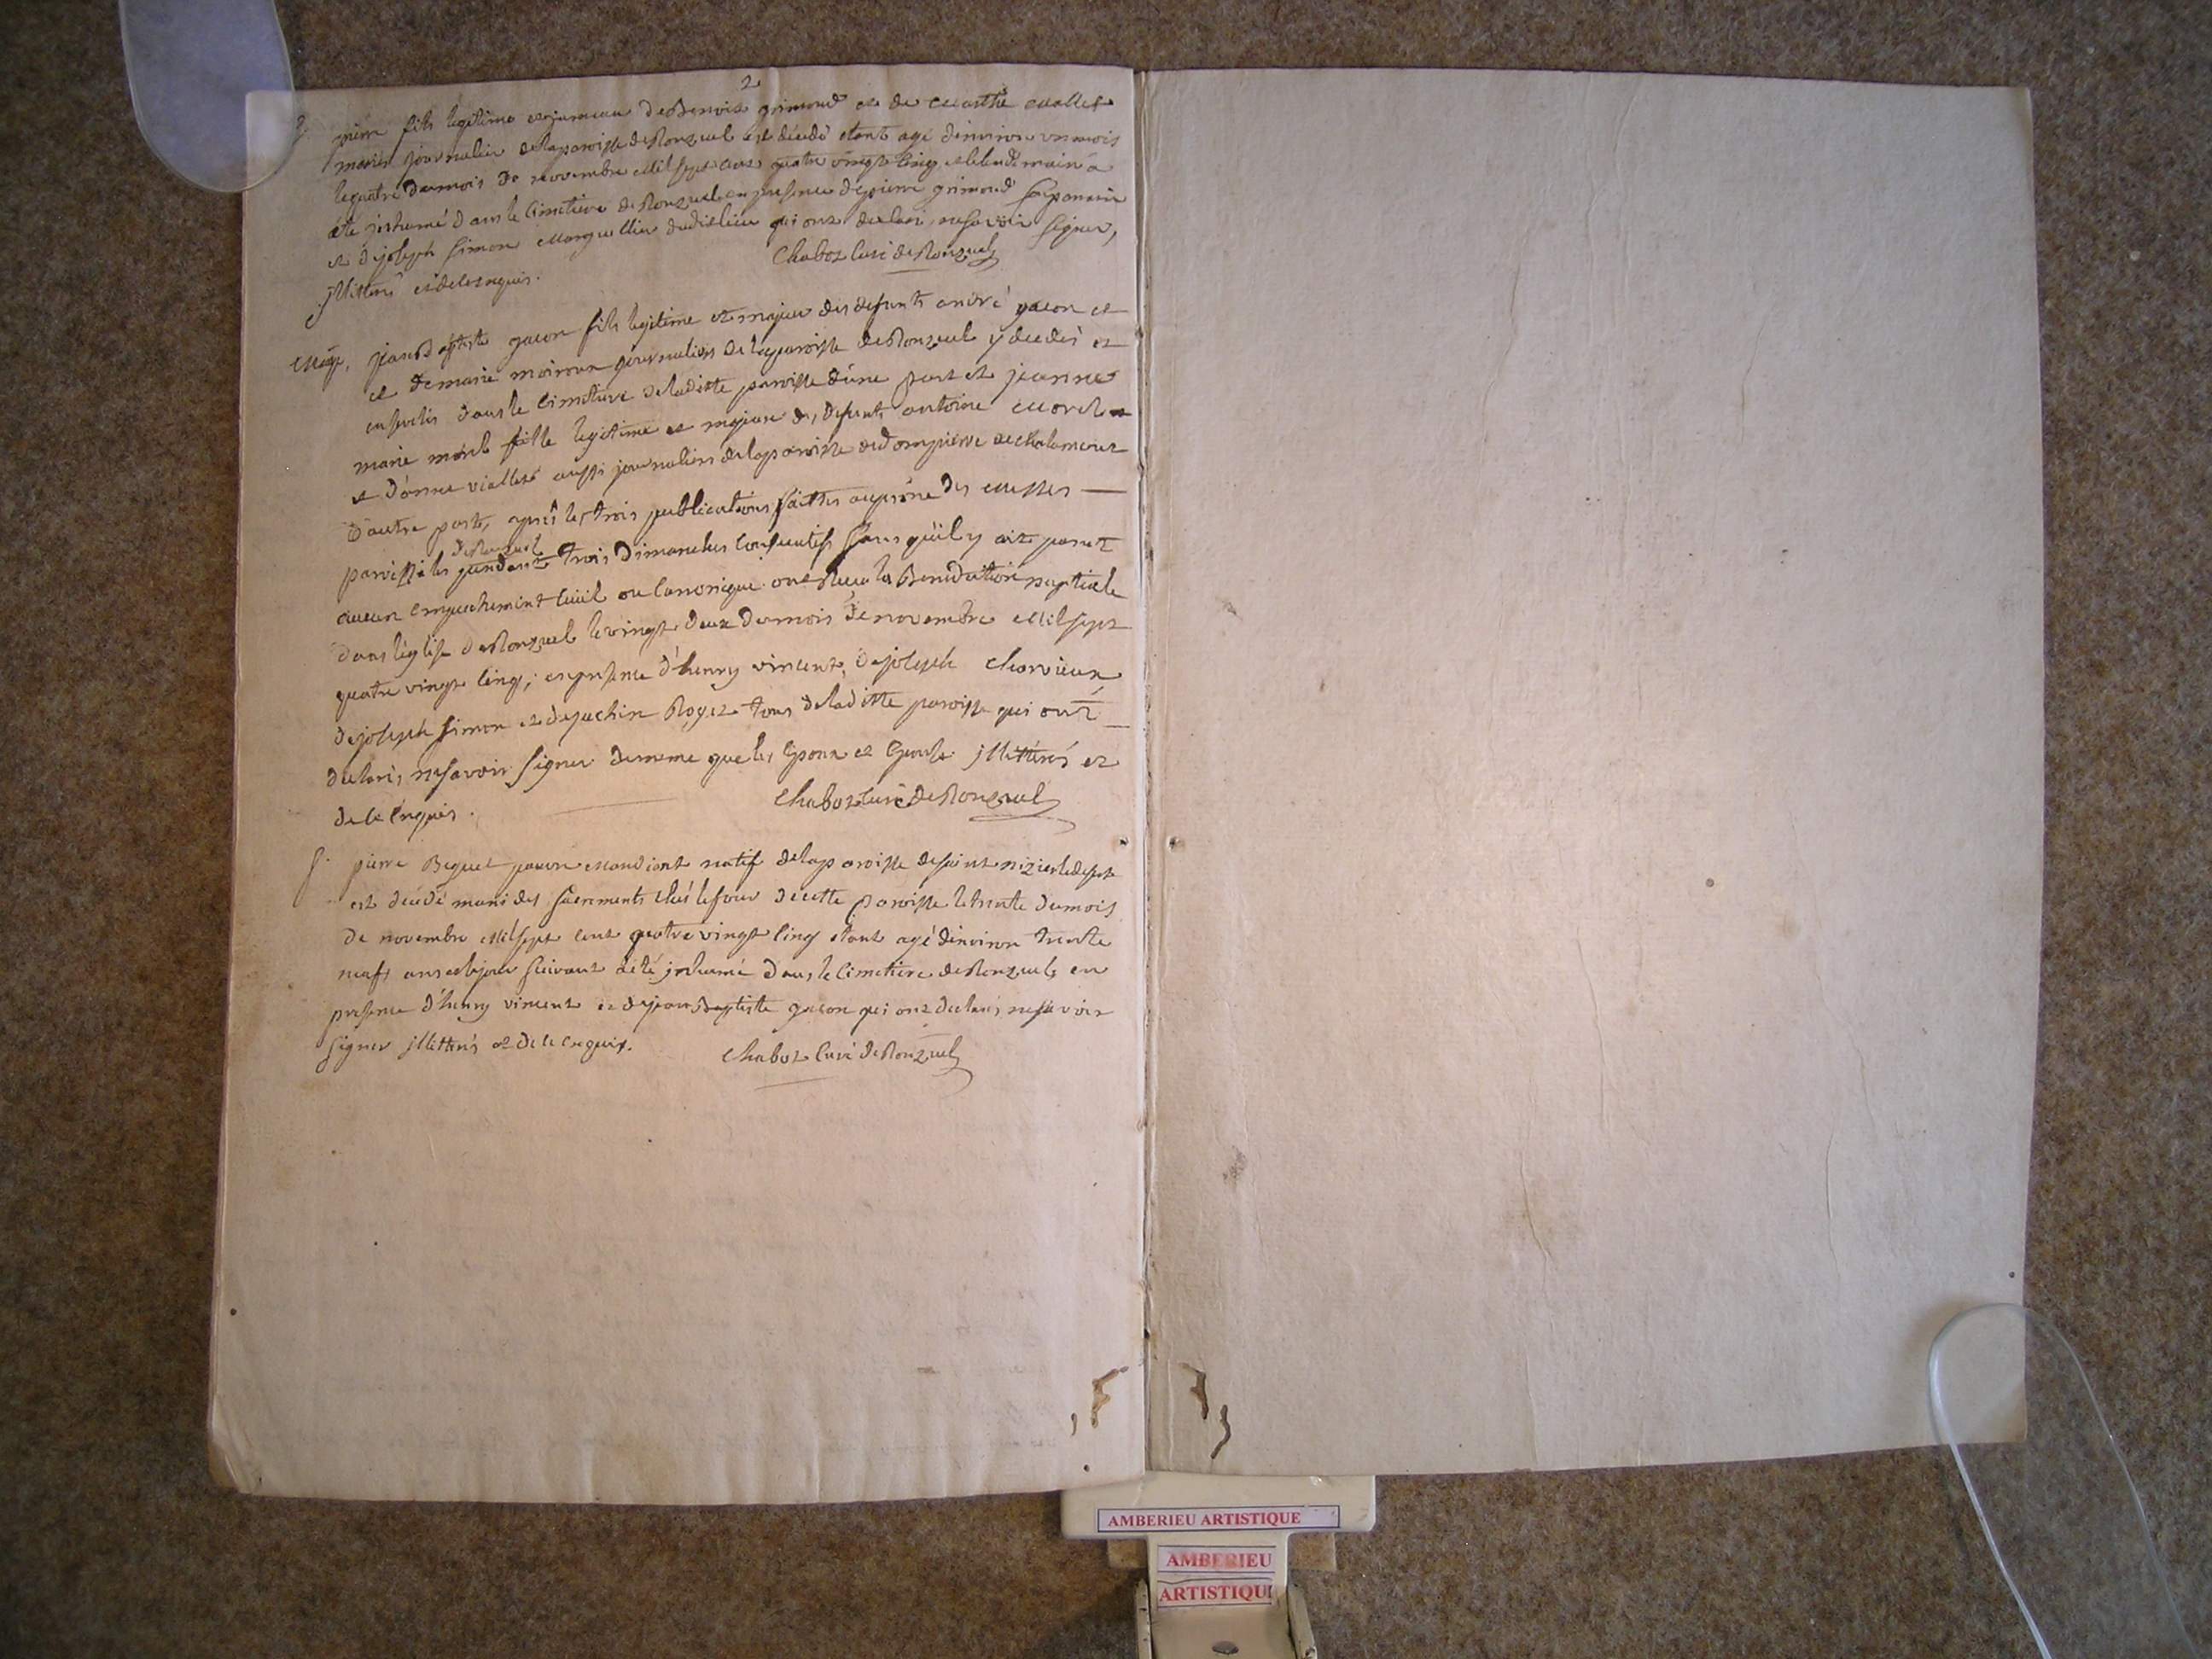 2
S. pierre fils legitime et jumeau de Benoit grimoud et de Marthe Mallet
mariés journalier de la paroisse de Ronzuel est décédé etant agé d'environ un mois
le quatre du mois de novembre Mil sept cent quatre vingt cinq et le lendemain a
été inhumé dans le Cimetiere de Ronzuel en presence de pierre grimoud son parrain
et de joseph Simon Marguillier dudit lieu qui ont declaré ne savoir signer,
illittérés et de ce enquis.
Chabot Curé de Ronzuel
Mage, jean Baptiste gacon fils legitime et majeur des defunts andré gacon et
et de marie moiroux journaliers de la paroisse de Ronzuel y decedés et
ensevelis dans le cimetiere de laditte paroisse d'une part et jeanne
marie morel fille legitime et majeure des defunts antoine Morel
et d'anne viallet aussi journaliers de la paroisse de dompierre de Chalamont
d'autre part, après les trois publications faittes au prône des Messes
de Ronzuel
paroissiales pendant trois Dimanches consecutifs sans qu'il y ait parut
aucun empechement Civil ou Canonique ont Reçu la Benediction nuptiale
dans l'église de Ronzuel le vingt deux du mois de novembre Mil sept
quatre vingt cinq, en presence d'henry vincent, de joseph Charvieux
de joseph Simon et de jachin Roget tous de laditte paroisse qui ont
declarés ne savoir signer de meme que les Epoux et Epouse illittérés et
de ce Enquis.
Chabot Curé de Ronzuel
S. pierre Beguet pauvre Mandiant natif de la paroisse de saint nizier le desert
est décédé muni des sacrements chés le four de cette paroisse le trente du mois
de novembre Mil sept cent quatre vingt cinq etant agé d'environ trente
neuf ans et le jour suivant a été inhumé dans le Cimetiere de Ronzuel en
presence d'henry vincent et de jean Baptiste gacon qui ont declarés ne savoir
signer illittérés et de ce enquis.
Chabot Curé de Ronzuel
AMBERIEU ARTISTIQUE
AMBERIEU
ARTISTIQU